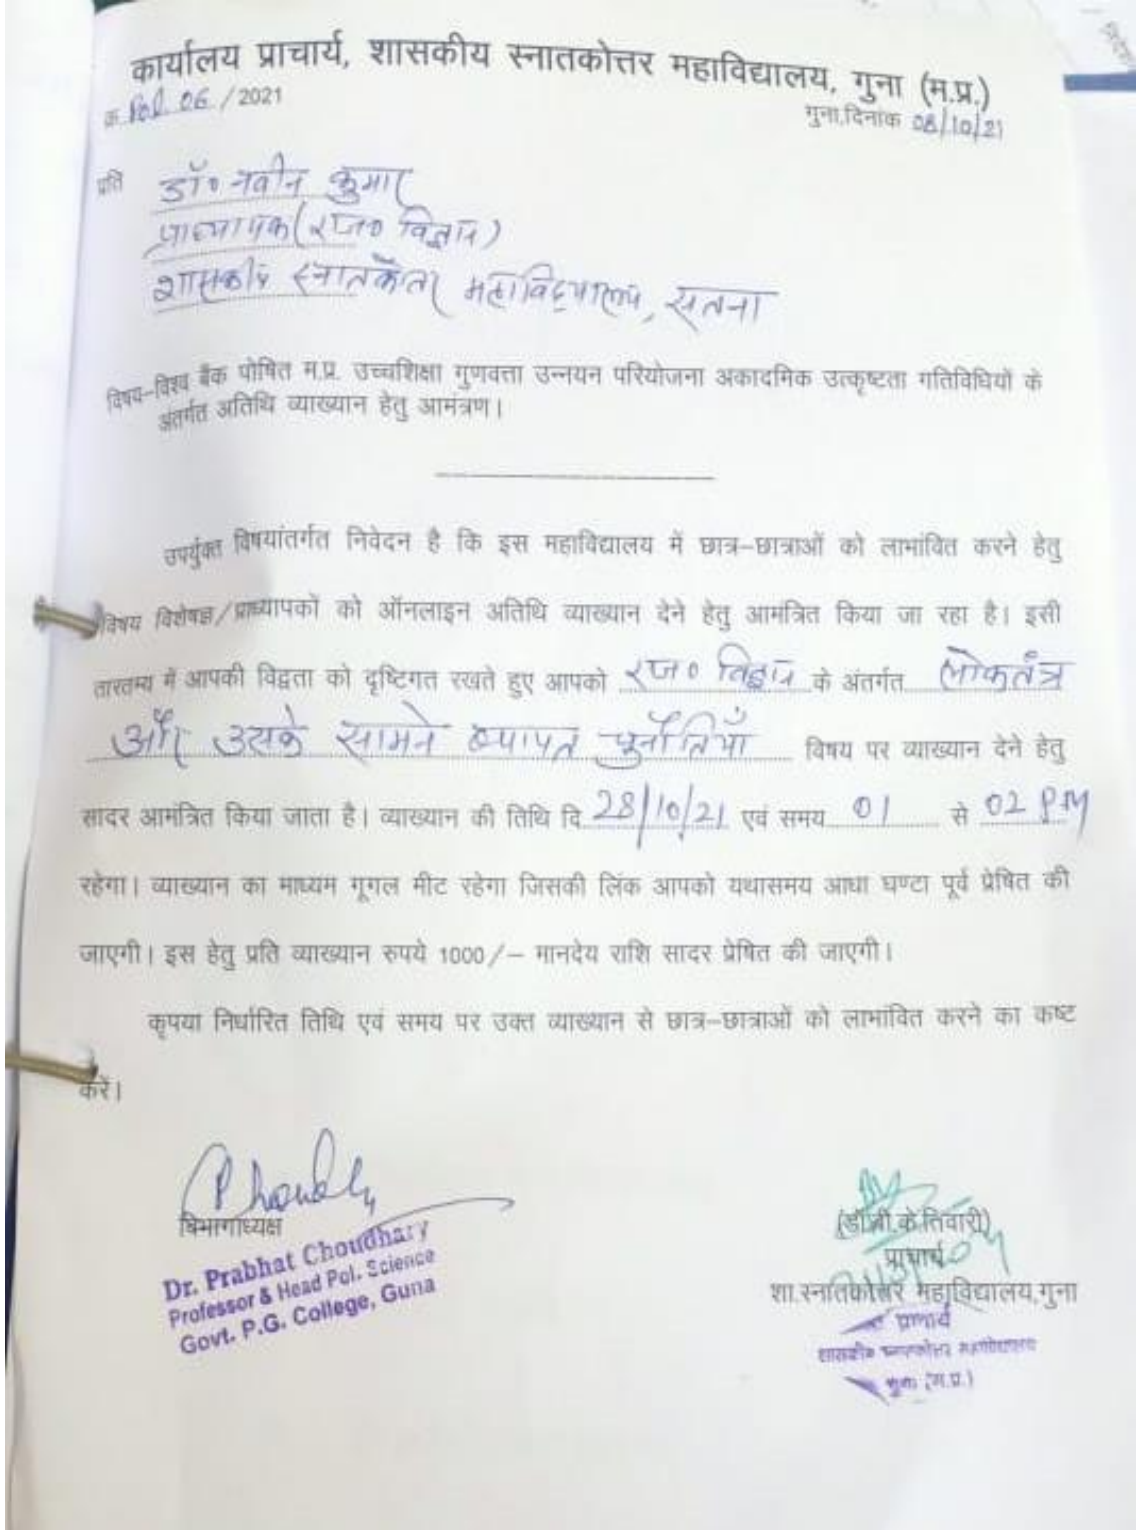 कार्यालय प्राचार्य, शासकीय स्नातकोत्तर महाविद्यालय, गुना (म.प्र.)
क्र Pol. 06 /2021
गुना,दिनांक 08/10/21
प्रति
डॉ० नवीन कुमार
प्राध्यापक (राज० विज्ञान)
शासकीय स्नातकोत्तर महाविद्यालय, सतना
विषय–विश्व बैंक पोषित म.प्र. उच्चशिक्षा गुणवत्ता उन्नयन परियोजना अकादमिक उत्कृष्टता गतिविधियों के
अंतर्गत अतिथि व्याख्यान हेतु आमंत्रण।
उपर्युक्त विषयांतर्गत निवेदन है कि इस महाविद्यालय में छात्र–छात्राओं को लाभांवित करने हेतु
विषय विशेषज्ञ/प्राध्यापकों को ऑनलाइन अतिथि व्याख्यान देने हेतु आमंत्रित किया जा रहा है। इसी
तारतम्य में आपकी विद्वता को दृष्टिगत रखते हुए आपको राज० विज्ञान के अंतर्गत लोकतंत्र
और उसके सामने व्यापत चुनौतियाँ विषय पर व्याख्यान देने हेतु
सादर आमंत्रित किया जाता है। व्याख्यान की तिथि दि 28/10/21 एवं समय 01 से 02 PM
रहेगा। व्याख्यान का माध्यम गूगल मीट रहेगा जिसकी लिंक आपको यथासमय आधा घण्टा पूर्व प्रेषित की
जाएगी। इस हेतु प्रति व्याख्यान रुपये 1000/– मानदेय राशि सादर प्रेषित की जाएगी।
कृपया निर्धारित तिथि एवं समय पर उक्त व्याख्यान से छात्र–छात्राओं को लाभांवित करने का कष्ट
करें।
विभागाध्यक्ष
Dr. Prabhat Choudhary
Professor & Head Pol. Science
Govt. P.G. College, Guna
(डॉ.बी.के.तिवारी)
प्राचार्य
शा.स्नातकोत्तर महाविद्यालय,गुना
प्राचार्य
शासकीय स्नातकोत्तर महाविद्यालय
गुना (म.प्र.)